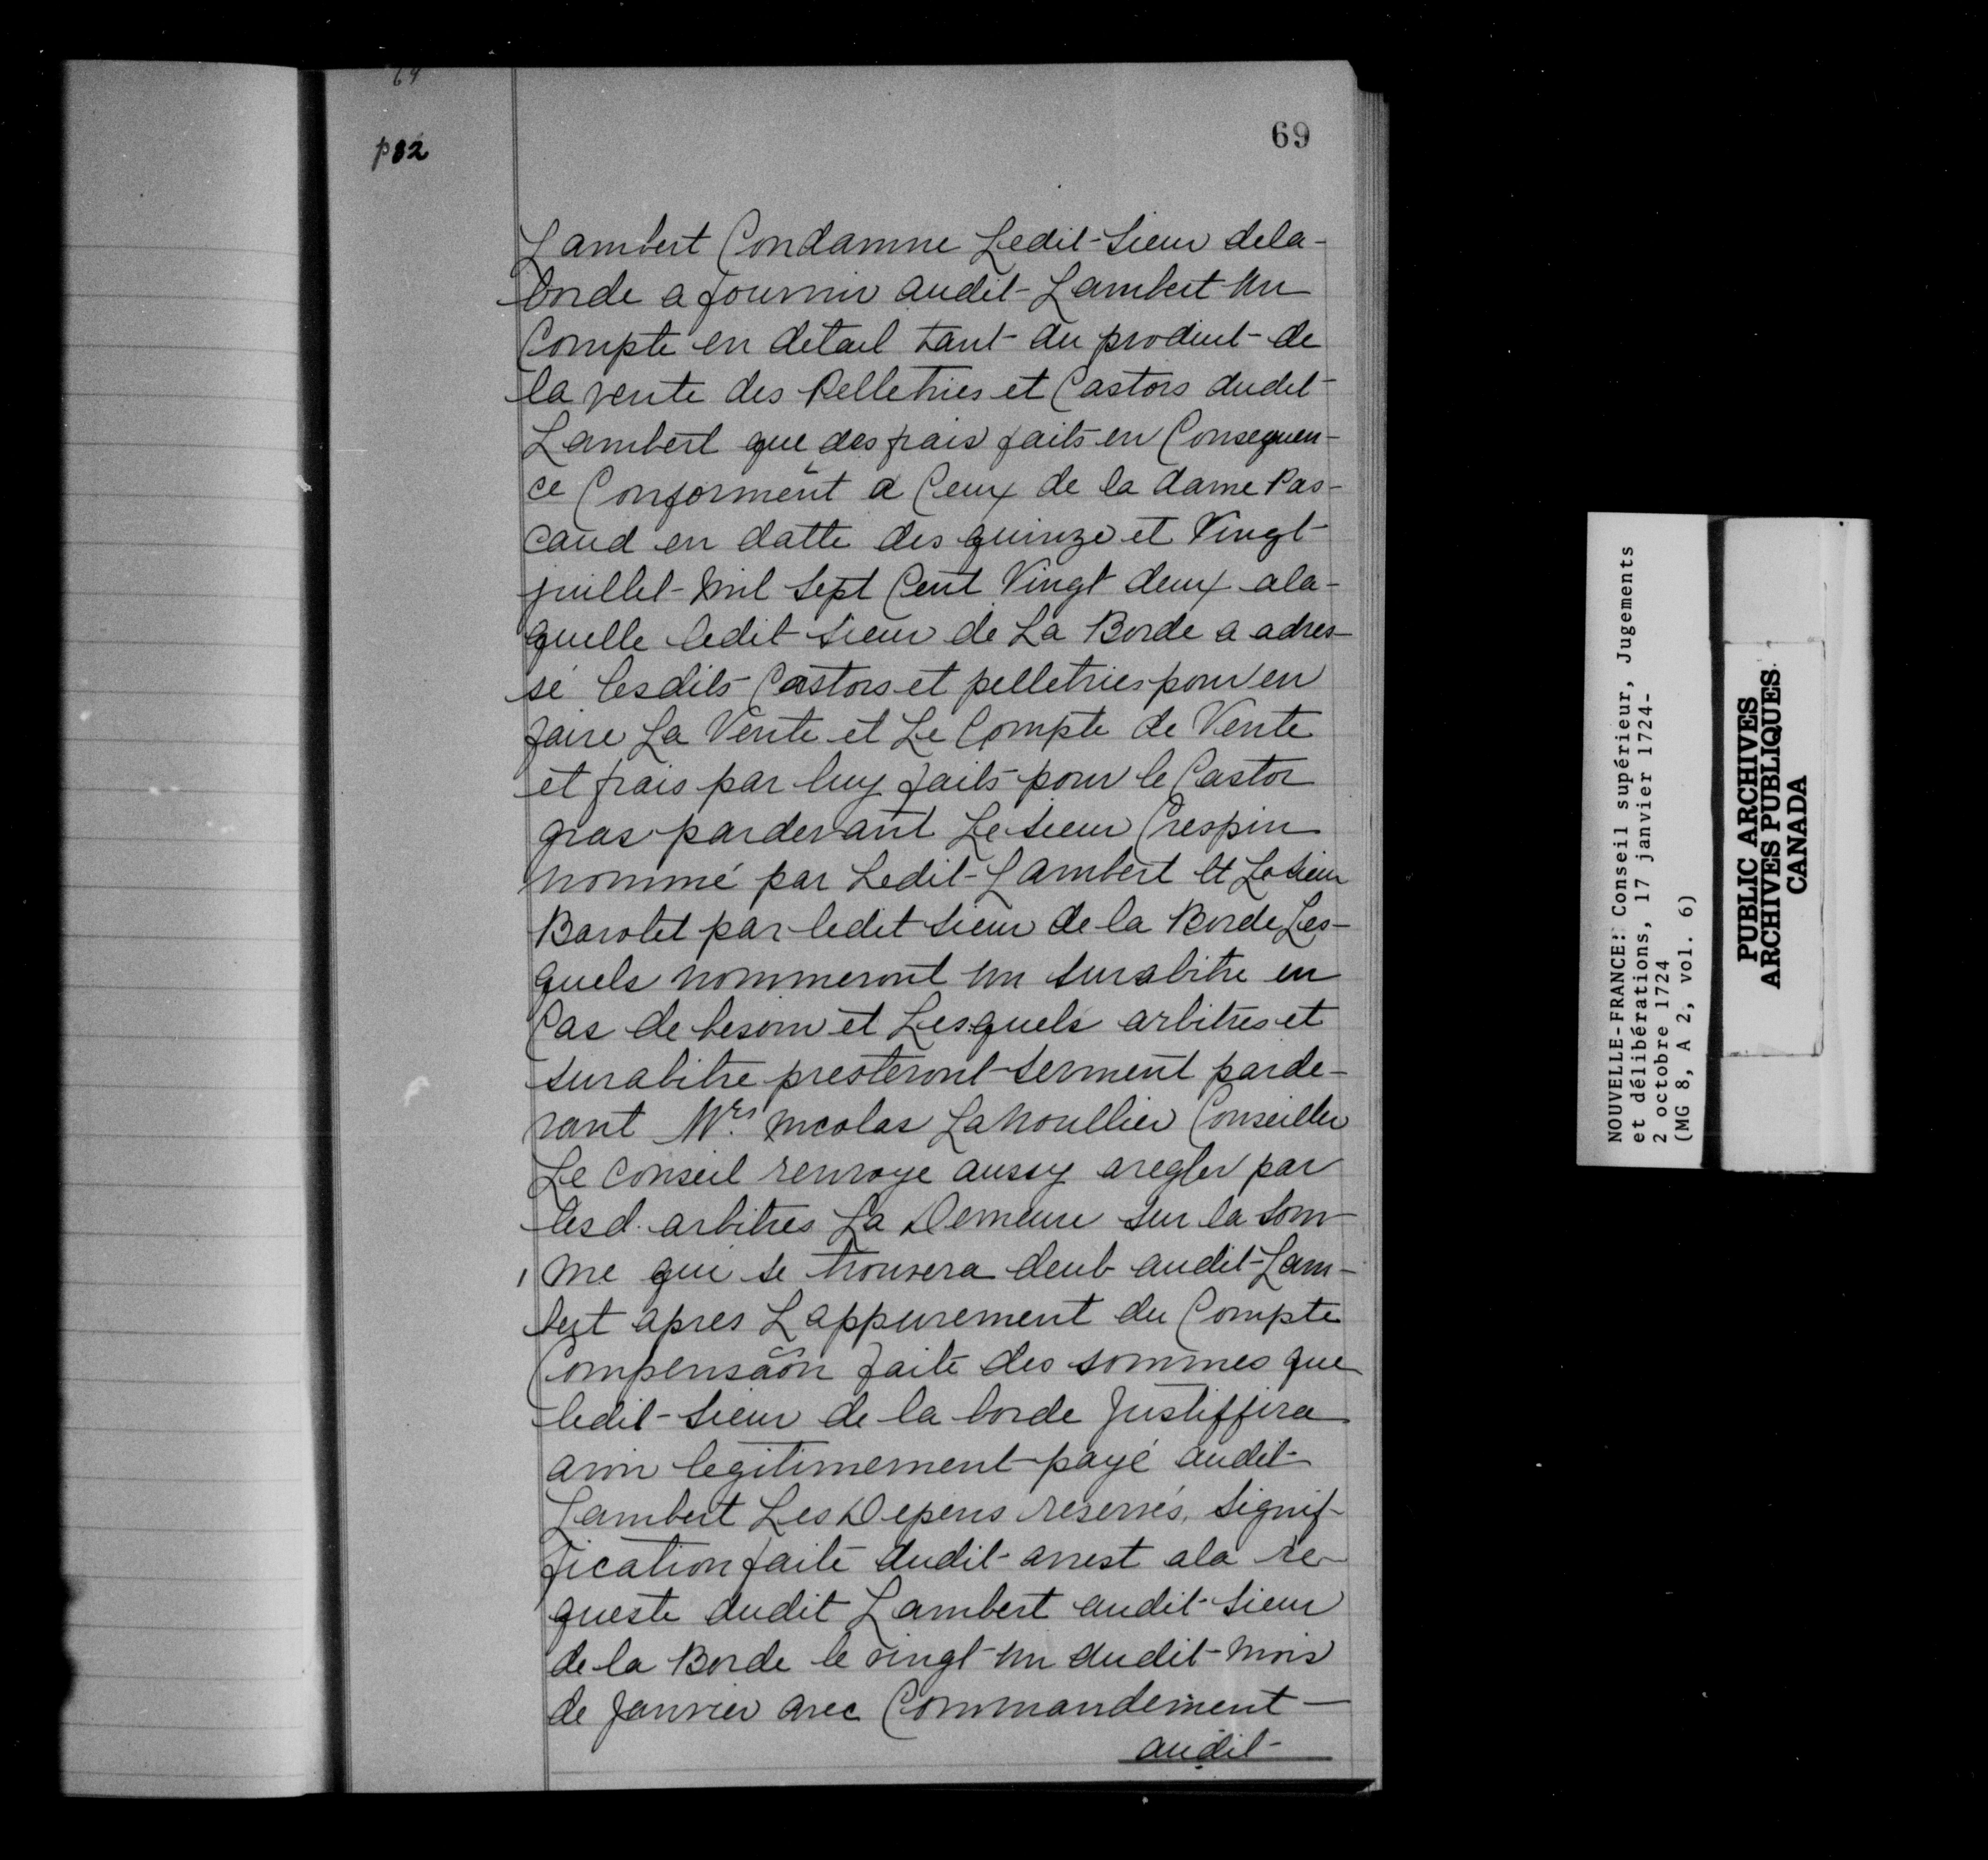 64
p82
69
Lambert Condamne Ledit Sieur dela-
borde a fournir audit Lambert Un
Compte en detail tant du produit de
la vente des Pelletries et Castors dudit
Lambert que des frais faits en Consequen-
ce Conforment a Ceux de la dame Pas-
caud en datte des quinze et Vingt
juillet Mil Sept Cent Vingt deux ala-
quelle ledit Sieur de La Borde a adres-
sé lesdits Castors et pelletries pour en
faire La Vente et Le Compte de Vente
et frais par luy faits pour le Castor
gras pardevant Le Sieur Crespin
nommé par Ledit Lambert et Le Sieur
Barolet par ledit Sieur de la Borde Les-
quels nommeront un surabitre en
Cas de besoin et Lesquels arbitres et
surabitre presteront serment parde-
vant Mes Nicolas Lanoullier Conseiller
Le Conseil renvoye aussy aregler par
lesd. arbitres La Demeure sur la som-
me qui se trouvera deub audit Lam-
bert apres Lappurement du Compte
Compensaon faite des sommes que
ledit Sieur de la borde Justiffira
avoir legitimement payé audit
Lambert Les Depens reservés, Signif-
fication faite dudit arrest ala re-
queste dudit Lambert audit Sieur
de la Borde le vingt un dudit mois
de Janvier avec Commandement
audit
NOUVELLE-FRANCE: Conseil supérieur, Jugements
et délibérations, 17 janvier 1724-
2 octobre 1724
(MG 8, A 2, vol. 6)
PUBLIC ARCHIVES
ARCHIVES PUBLIQUES
CANADA